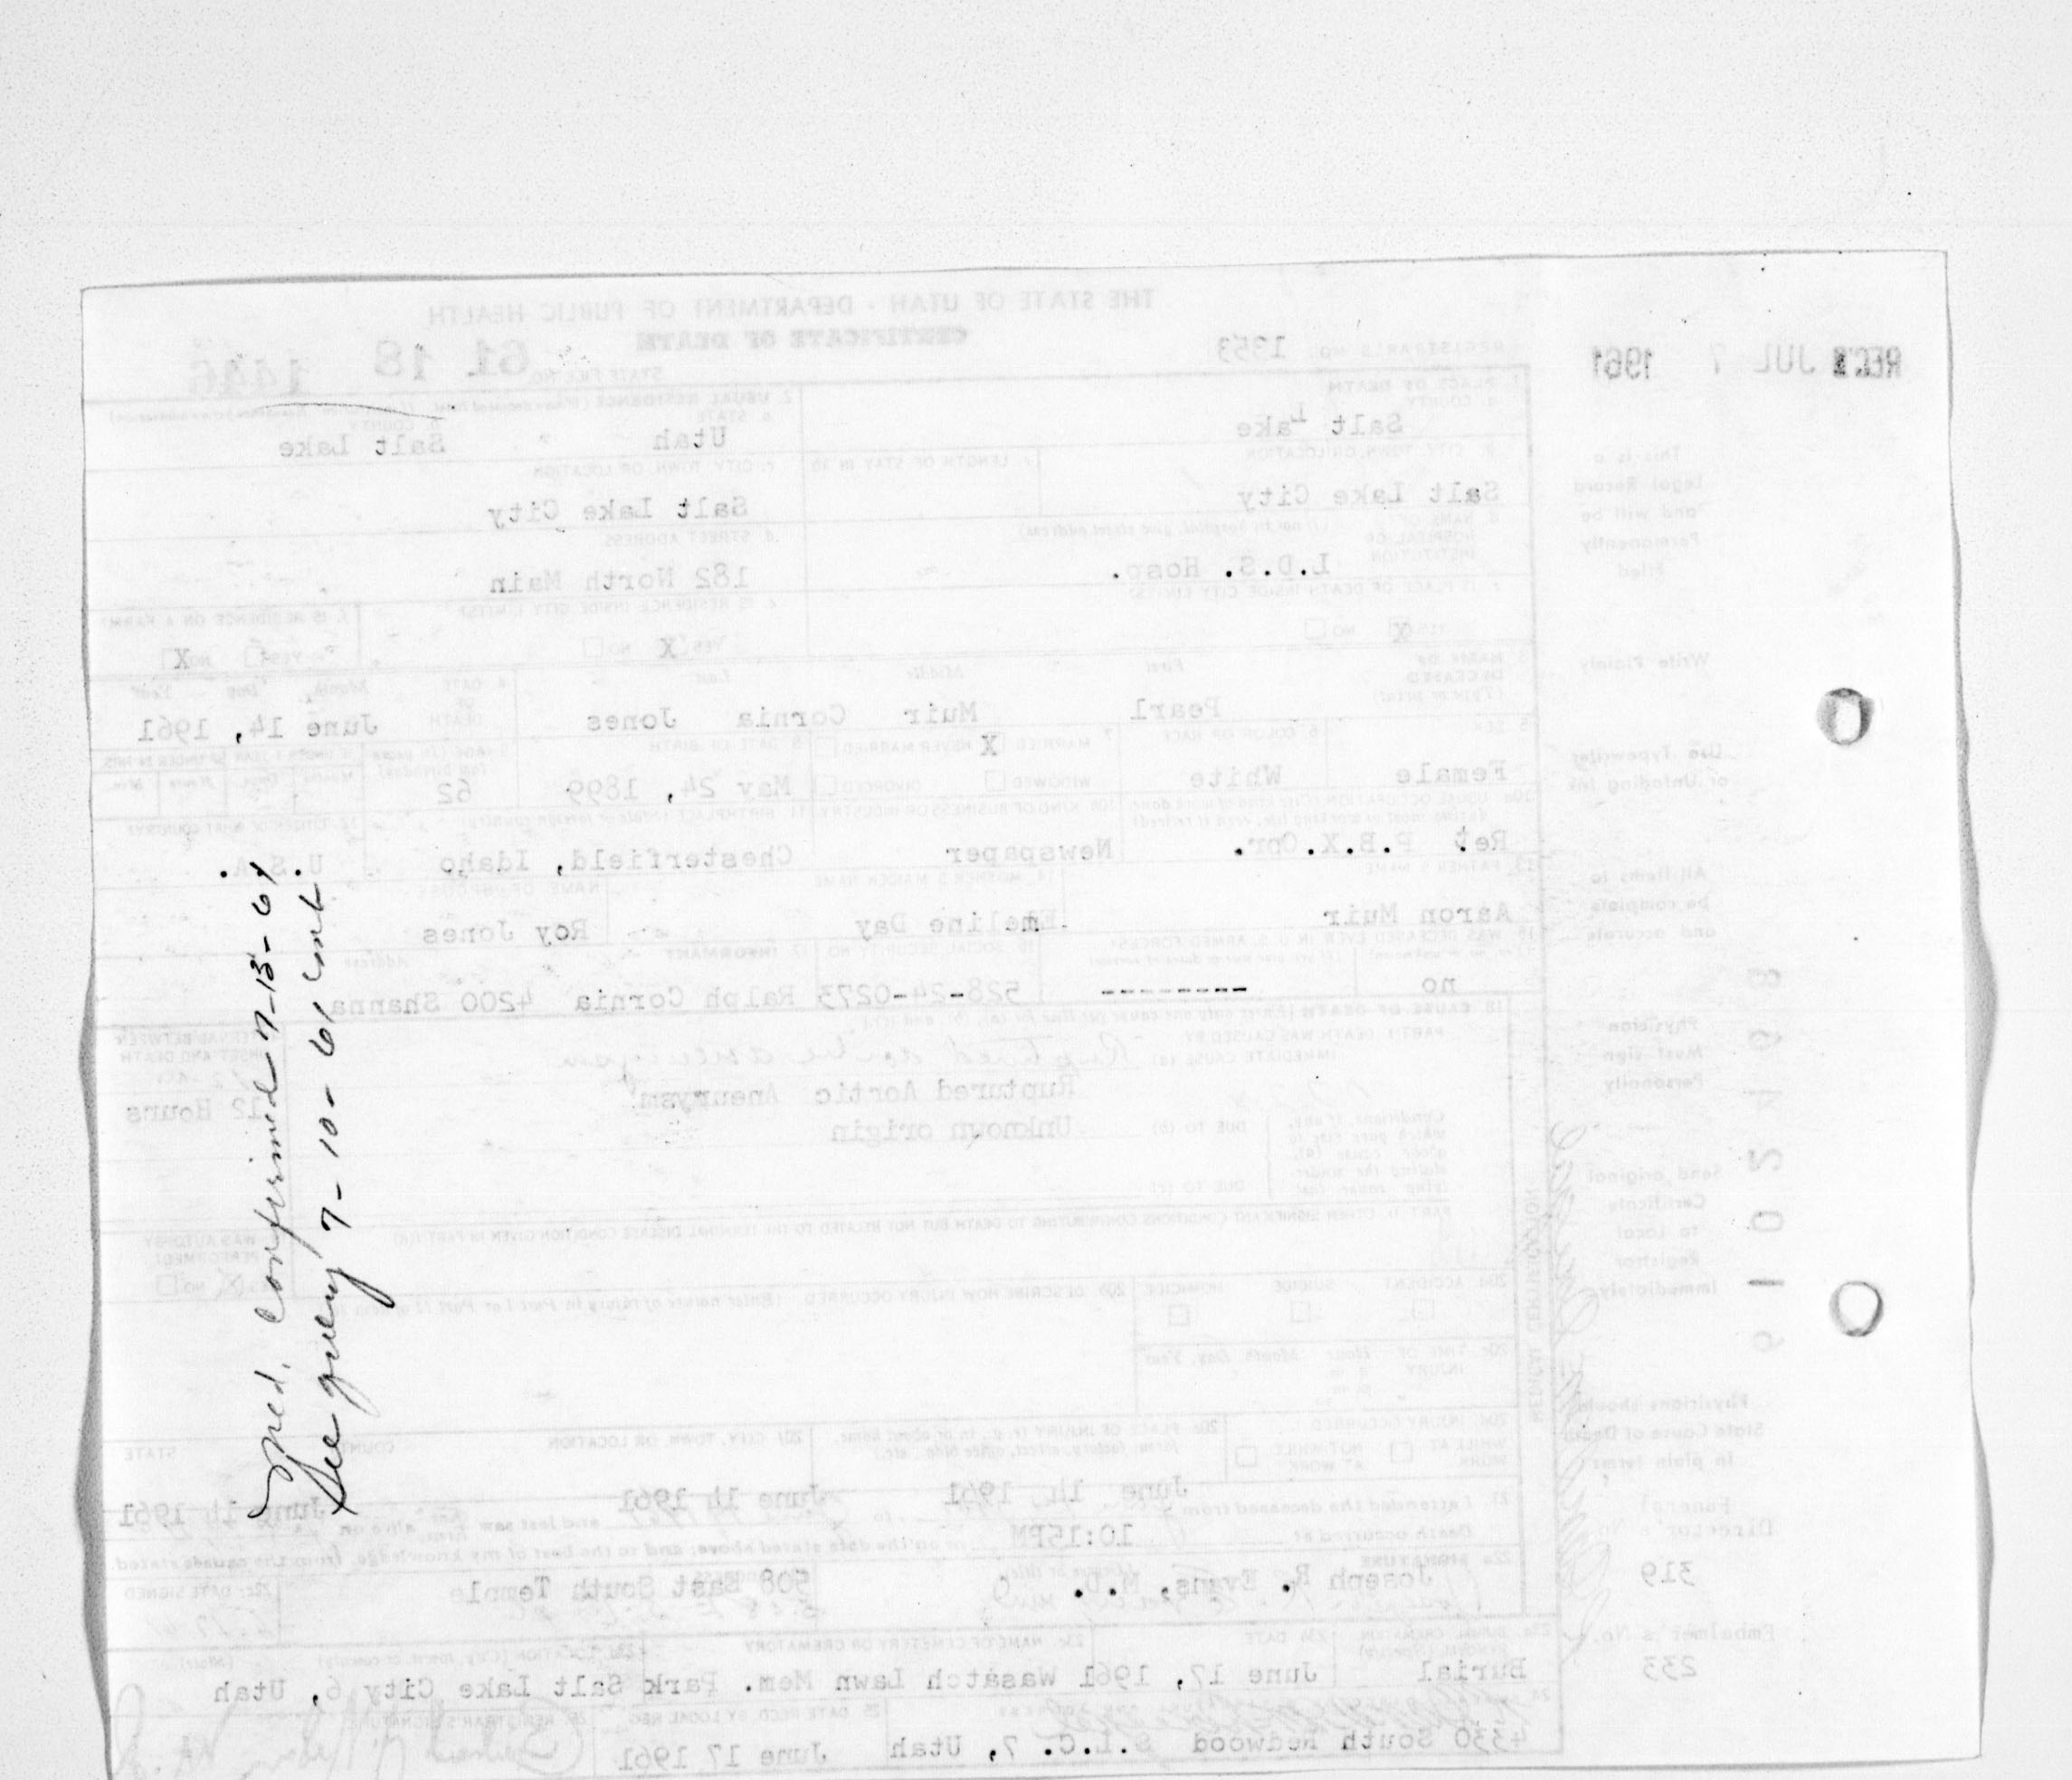 THE STATE OF UTAH - DEPARTMENT OF PUBLIC HEALTH
CERTIFICATE OF DEATH
REC'D JUL 7 1961
REGISTRAR'S NO. 1353
STATE FILE NO. 61 18 1446
This is a Legal Record and will be Permanently Filed
1. PLACE OF DEATH
a. COUNTY
Salt Lake
2. USUAL RESIDENCE
a. STATE
Utah
b. COUNTY
Salt Lake
b. CITY, TOWN, OR LOCATION
Salt Lake City
c. LENGTH OF STAY IN 1b
c. CITY, TOWN, OR LOCATION
Salt Lake City
d. NAME OF HOSPITAL OR INSTITUTION (If not in hospital, give street address)
L.D.S. Hosp.
d. STREET ADDRESS
182 North Main
e. IS PLACE OF DEATH INSIDE CITY LIMITS?
YES X NO
e. IS RESIDENCE INSIDE CITY LIMITS?
YES X NO
f. IS RESIDENCE ON A FARM?
YES NO X
Write Plainly
3. NAME OF DECEASED (Type or print)
First Middle Last
Pearl Muir Cornia Jones
4. DATE OF DEATH Month Day Year
June 14, 1961
Use Typewriter or Unfading Ink
5. SEX
Female
6. COLOR OR RACE
White
7. MARRIED X NEVER MARRIED
WIDOWED DIVORCED
8. DATE OF BIRTH
May 24, 1899
9. AGE (In years last birthday)
62
IF UNDER 1 YEAR IF UNDER 24 HRS.
Months Days Hours Min.
10a. USUAL OCCUPATION (Give kind of work done during most of working life, even if retired)
Ret P.B.X.Opr.
10b. KIND OF BUSINESS OR INDUSTRY
Newspaper
11. BIRTHPLACE (State or foreign country)
Chesterfield, Idaho
12. CITIZEN OF WHAT COUNTRY?
U.S.A.
All Items to be complete and accurate
13. FATHER'S NAME
Aaron Muir
14. MOTHER'S MAIDEN NAME
Emeline Day
NAME OF SPOUSE
Roy Jones
15. WAS DECEASED EVER IN U.S. ARMED FORCES?
(Yes, no, or unknown) (If yes, give war or dates of service)
no ---------
16. SOCIAL SECURITY NO.
528-24-0273
17. INFORMANT Address
Ralph Cornia 4200 Shanna
Physician Must sign Personally
18. CAUSE OF DEATH (Enter only one cause per line for (a), (b), and (c))
PART I. DEATH WAS CAUSED BY
IMMEDIATE CAUSE (a)
Ruptured aortic aneurysm
Ruptured Aortic Aneurysm
INTERVAL BETWEEN ONSET AND DEATH
12 Hours
Conditions, if any, which gave rise to above cause (a), stating the underlying cause last
DUE TO (b)
Unknown origin
DUE TO (c)
PART II. OTHER SIGNIFICANT CONDITIONS CONTRIBUTING TO DEATH BUT NOT RELATED TO THE TERMINAL DISEASE CONDITION GIVEN IN PART I(a)
19. WAS AUTOPSY PERFORMED?
YES X NO
Send original Certificate to Local Registrar Immediately
20a. ACCIDENT SUICIDE HOMICIDE
20b. DESCRIBE HOW INJURY OCCURRED. (Enter nature of injury in Part I or Part II of item 18)
20c. TIME OF INJURY Hour Month Day Year
a.m.
p.m.
MEDICAL CERTIFICATION
Physicians should State Cause of Death in plain terms
20d. INJURY OCCURRED
WHILE AT WORK NOT WHILE AT WORK
20e. PLACE OF INJURY (e.g., in or about home, farm, factory, street, office bldg., etc.)
20f. CITY, TOWN, OR LOCATION COUNTY STATE
June 14 1961 June 14 1961 June 14 1961
21. I attended the deceased from to and last saw alive on
Death occurred at 10:15PM m on the date stated above; and to the best of my knowledge, from the causes stated.
Funeral Director's No.
319
22a. SIGNATURE (Degree or title)
Joseph R. Evans, M.D.
22b. ADDRESS
508 East South Temple
22c. DATE SIGNED
Embalmer's No.
233
23a. BURIAL, CREMATION, REMOVAL (Specify)
Burial
23b. DATE
June 17, 1961
23c. NAME OF CEMETERY OR CREMATORY
Wasatch Lawn Mem. Park
23d. LOCATION (City, town, or county) (State)
Salt Lake City 6, Utah
4330 South Redwood S.L.C. 7, Utah
25. DATE RECD. BY LOCAL REG.
June 17 1961
26. REGISTRAR'S SIGNATURE
Med. Confirmed 7-13-61
See query 7-10-61